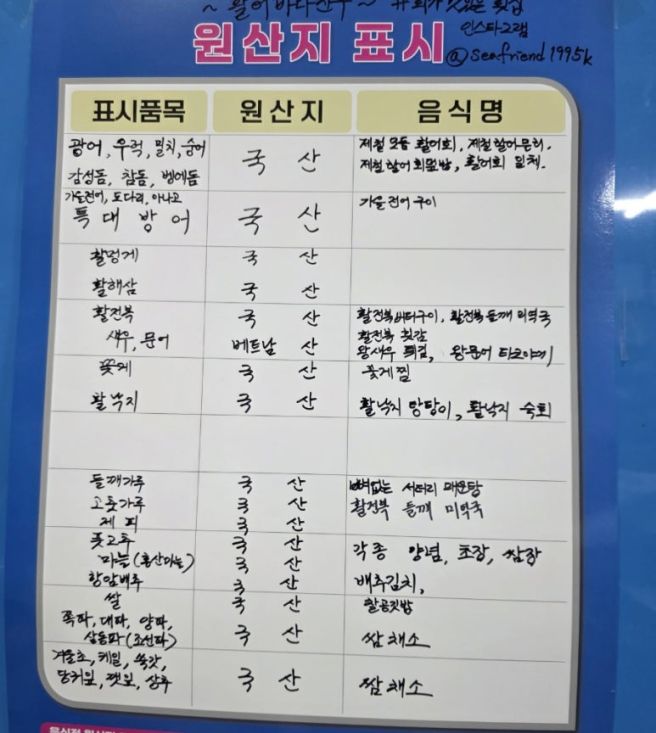 ~ 활어바다친구 ~ #회가 맛있는 횟집
인스타그램
원산지 표시 @seafriend1995k
표시품목 원산지 음식명
광어, 우럭, 밀치, 숭어
감성돔, 참돔, 벵에돔 국 산 제철 모듬 활어회, 제철
제철 활어 회덮밥, 활어회 일체.
가을전어, 도다리, 아나고
특대방어 국 산 가을전어구이
활멍게 국 산
활해삼 국 산
활전복 국 산 활전복버터구이, 활전복 들깨 미역국
활전복
새우, 문어 베트남 산 왕새우 튀김, 왕문어 타코야끼
꽃게 국 산 꽃게찜
활낙지 국 산 활낙지 탕탕이, 활낙지 숙회
들깨가루 국 산 뼈없는 서더리 매운탕
고춧가루 국 산 활전복 들깨 미역국
제피 국 산
풋고추 국 산
마늘 국 산 각종 양념, 초장, 쌈장
배추 국 산 배추김치,
쌀 국 산
쪽파, 대파, 양파,
(조선파) 국 산 쌈채소
겨울초, 케일, 쑥갓,
깻잎, 상추 국 산 쌈채소